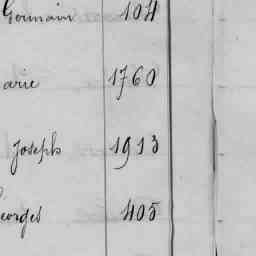 Germain 104
arie 1760
Joseph 1913
eorges 405